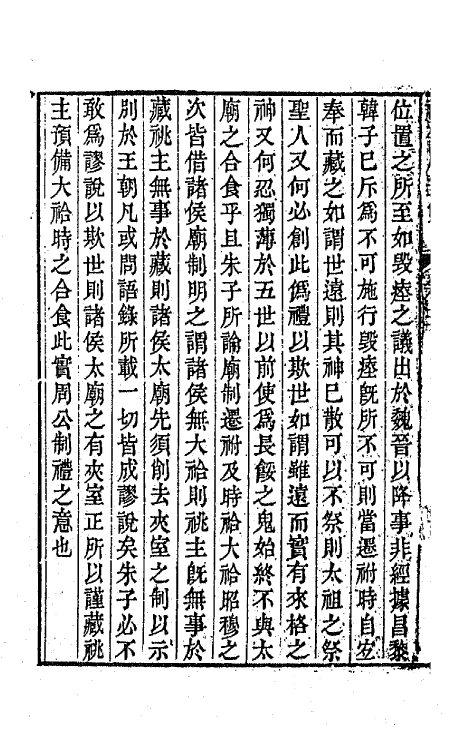 位置之所至如毀瘞之議出於魏晉以降事非經據昌黎
韓子已斥爲不可施行毀瘞旣所不可則當遷祔時自宜
奉而藏之如謂世遠則其神已散可以不祭則太祖之祭
聖人又何必創此僞禮以欺世如謂雖遠而實有來格之
神又何忍獨薄於五世以前使爲長餒之鬼始終不與太
廟之合食乎且朱子所論廟制遷祔及時祫大祫昭穆之
次皆借諸侯廟制明之謂諸侯無大祫則祧主旣無事於
藏祧主無事於藏則諸侯太廟先須削去夾室之制以示
別於王朝凡或問語錄所載一切皆成謬說矣朱子必不
敢爲謬說以欺世則諸侯太廟之有夾室正所以謹藏祧
主預備大祫時之合食此實周公制禮之意也